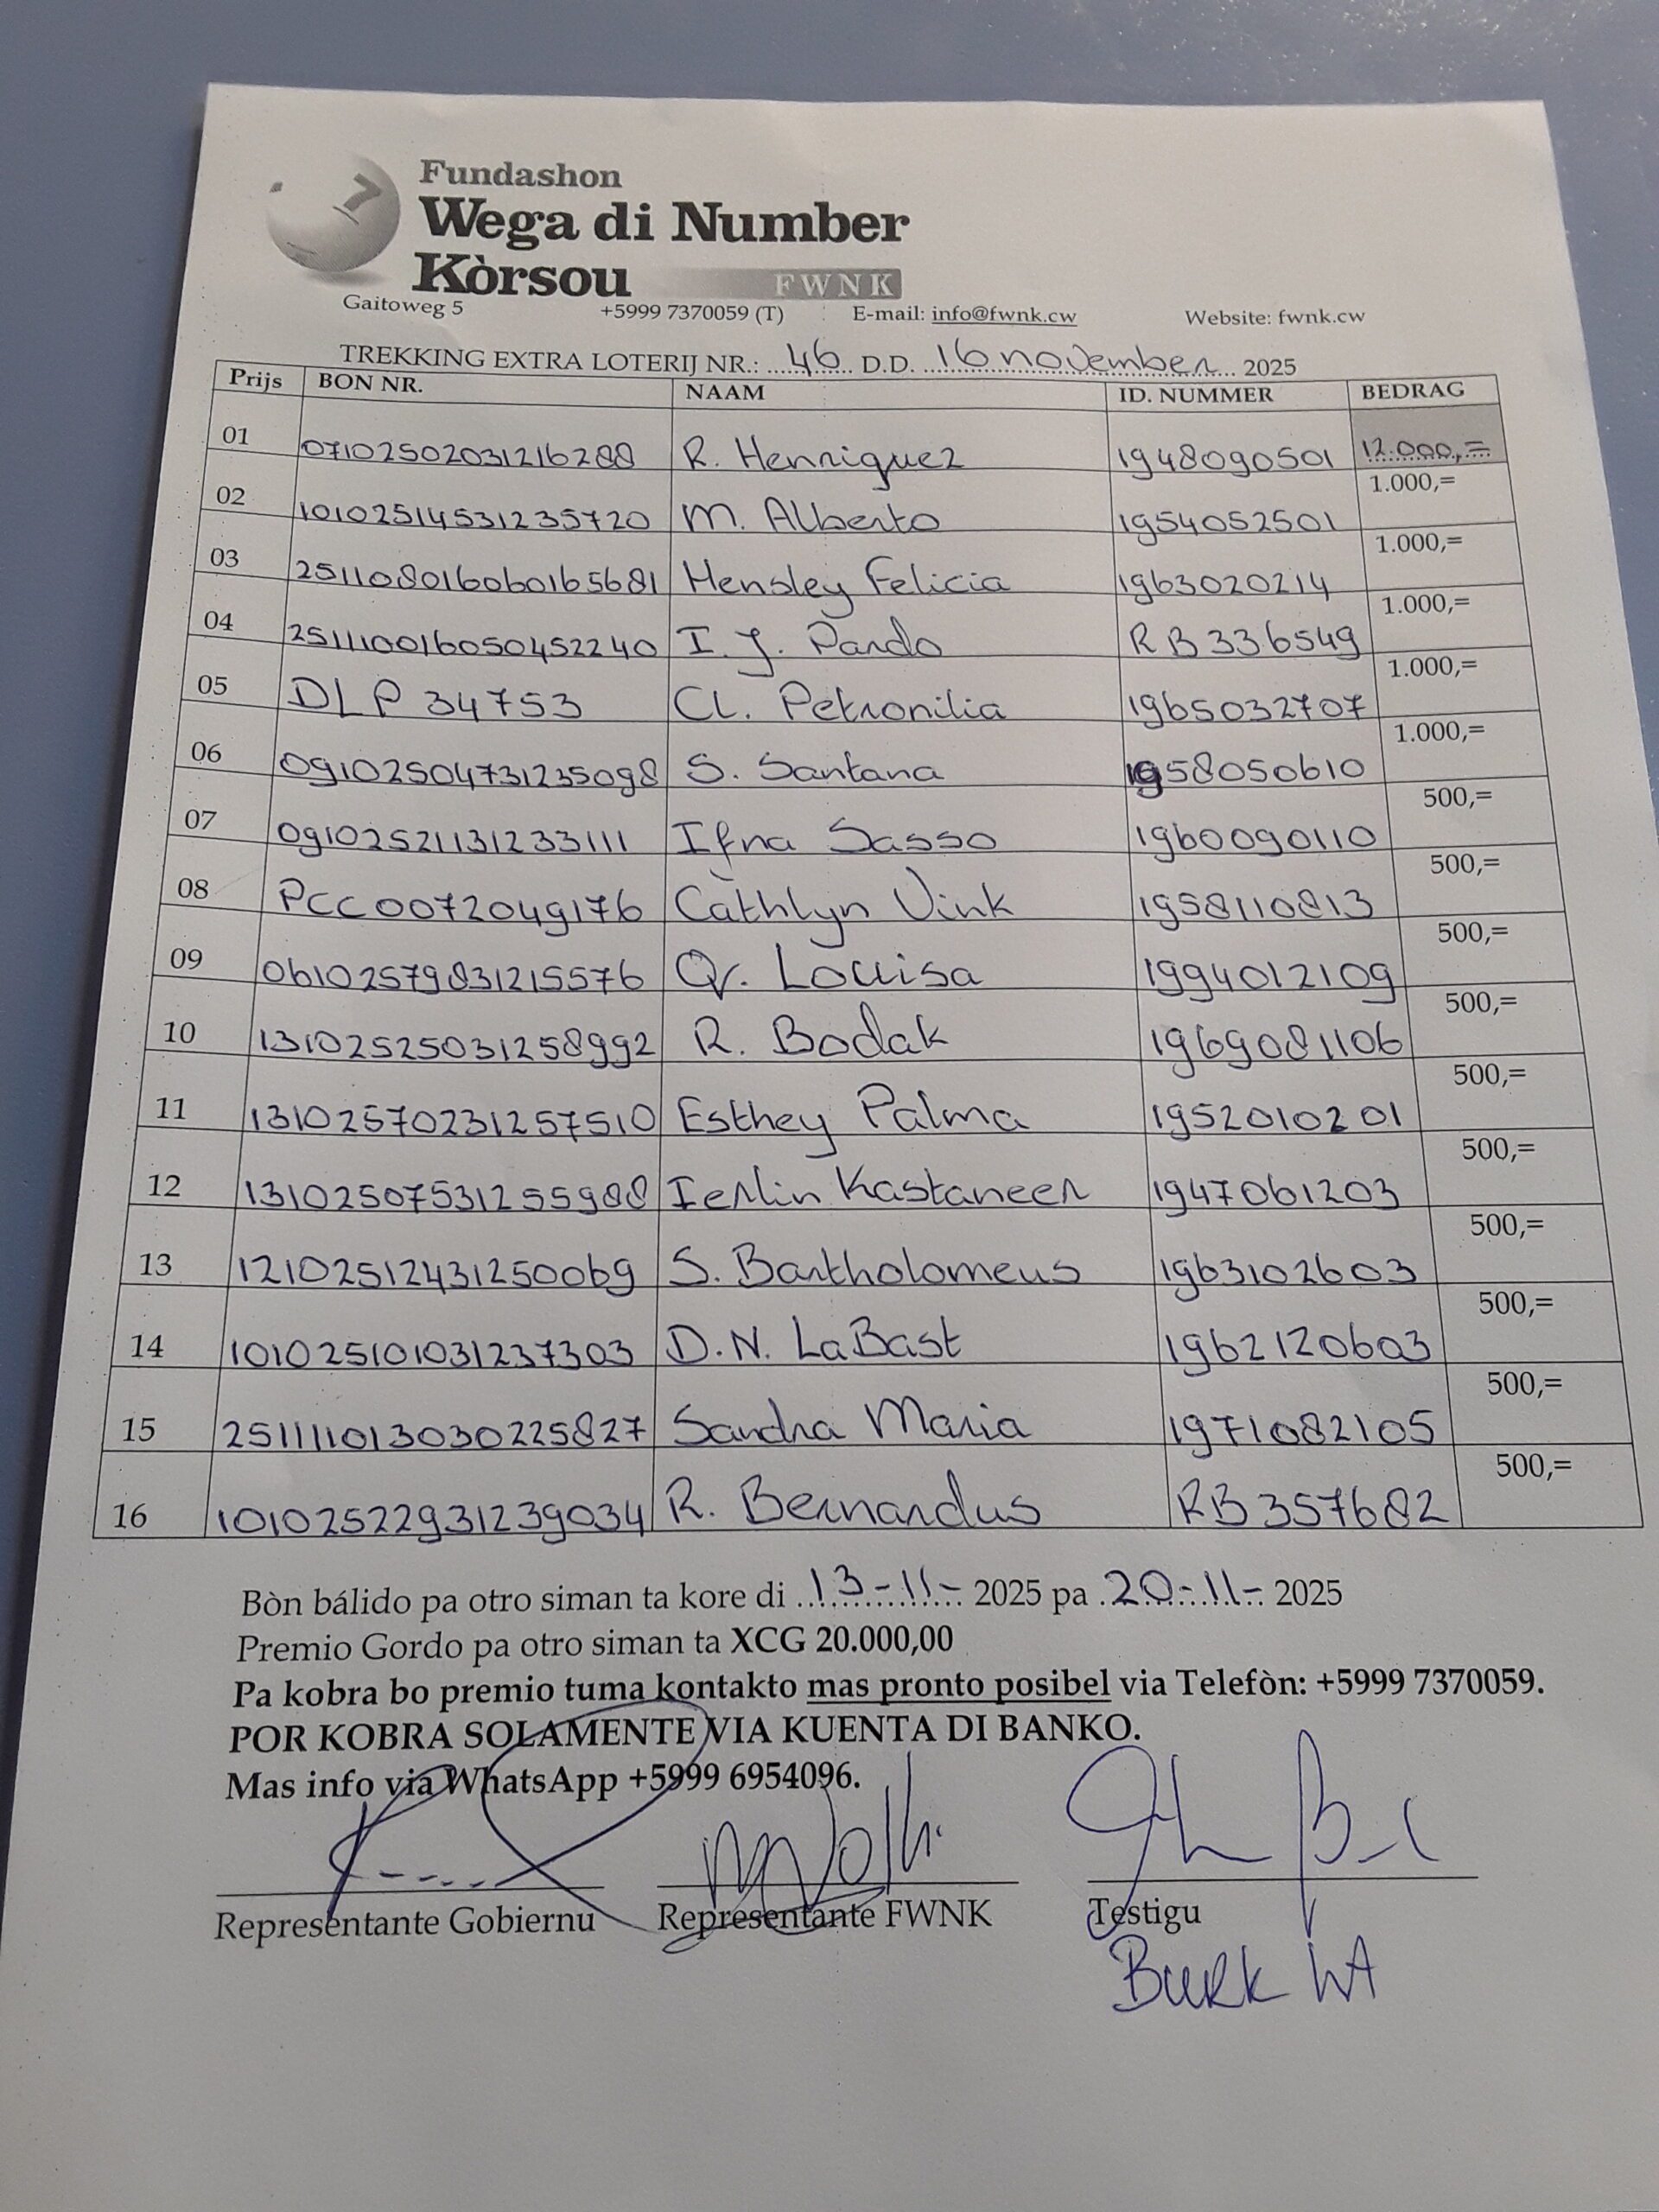 Fundashon
Wega di Number
Kòrsou FWNK
Gaitoweg 5 +5999 7370059 (T) E-mail: info@fwnk.cw Website: fwnk.cw
TREKKING EXTRA LOTERIJ NR.: 46 D.D. 16 november 2025
Prijs BON NR. NAAM ID. NUMMER BEDRAG
01 07102502031216288 R. Henriquez 1948090501 12.000,=
02 10102514531235720 M. Alberto 1954052501 1.000,=
03 251108016060165681 Hensley Felicia 1963020214 1.000,=
04 251110016050452240 I. J. Pando RB336549 1.000,=
05 DLP 34753 Cl. Petronilia 1965032707 1.000,=
06 09102504731235098 S. Santana 1958050610 1.000,=
07 09102521131233111 Ifna Sasso 1960090110 500,=
08 PCC0072049176 Cathlyn Vink 1958110813 500,=
09 06102579831215576 Qr. Louisa 1994012109 500,=
10 13102525031258992 R. Bodak 1969081106 500,=
11 13102570231257510 Esthey Palma 1952010201 500,=
12 13102507531255988 Ierlin Kastaneer 1947061203 500,=
13 12102512431250069 S. Bartholomeus 1963102603 500,=
14 10102510103123７303 D.N. LaBast 1962120603 500,=
15 251111013030225827 Sandra Maria 1971082105 500,=
16 10102522931239034 R. Bernardus RB357682 500,=
Bòn bálido pa otro siman ta kore di 13-11- 2025 pa 20-11- 2025
Premio Gordo pa otro siman ta XCG 20.000,00
Pa kobra bo premio tuma kontakto mas pronto posibel via Telefòn: +5999 7370059.
POR KOBRA SOLAMENTE VIA KUENTA DI BANKO.
Mas info via WhatsApp +5999 6954096.
Representante Gobiernu Representante FWNK Testigu
Burk WA